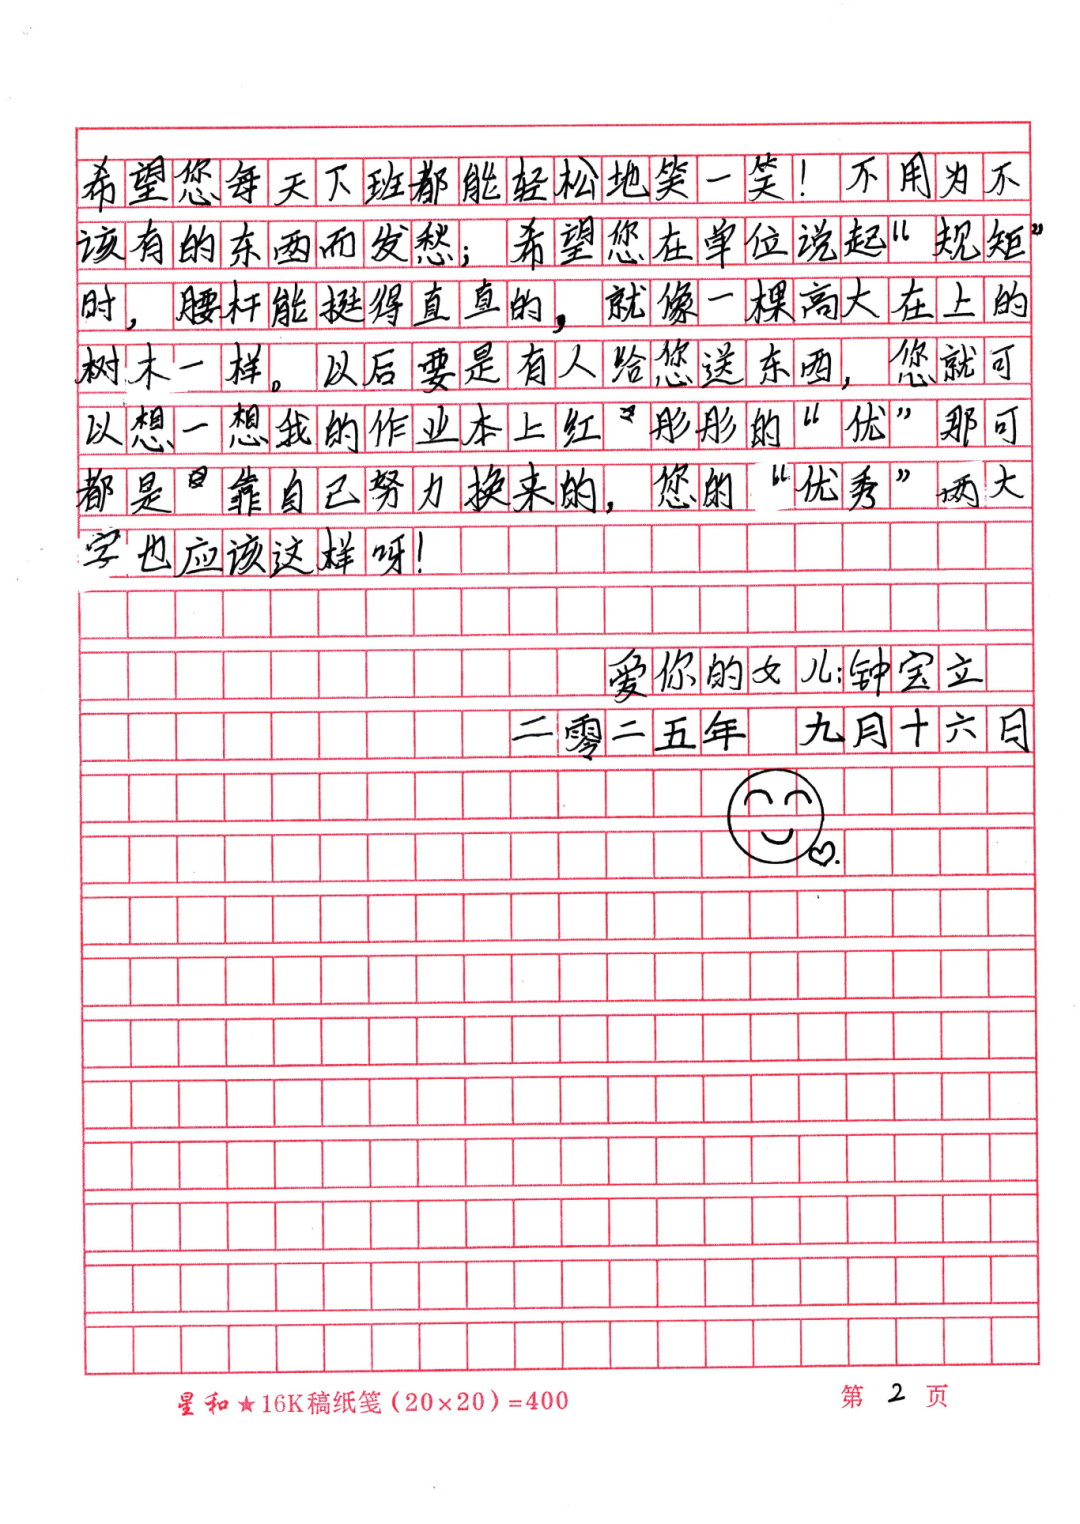 希望您每天下班都能轻松地笑一笑！不用为不
该有的东西而发愁；希望您在单位说起“规矩”
时，腰杆能挺得直直的，就像一棵高大在上的
树木一样。以后要是有人给您送东西，您就可
以想一想我的作业本上红彤彤的“优”那可
都是靠自己努力换来的，您的“优秀”两大
字也应该这样呀！
爱你的女儿：钟宝立
二零二五年 九月十六日
星和★16K稿纸笺(20×20)=400
第 2 页